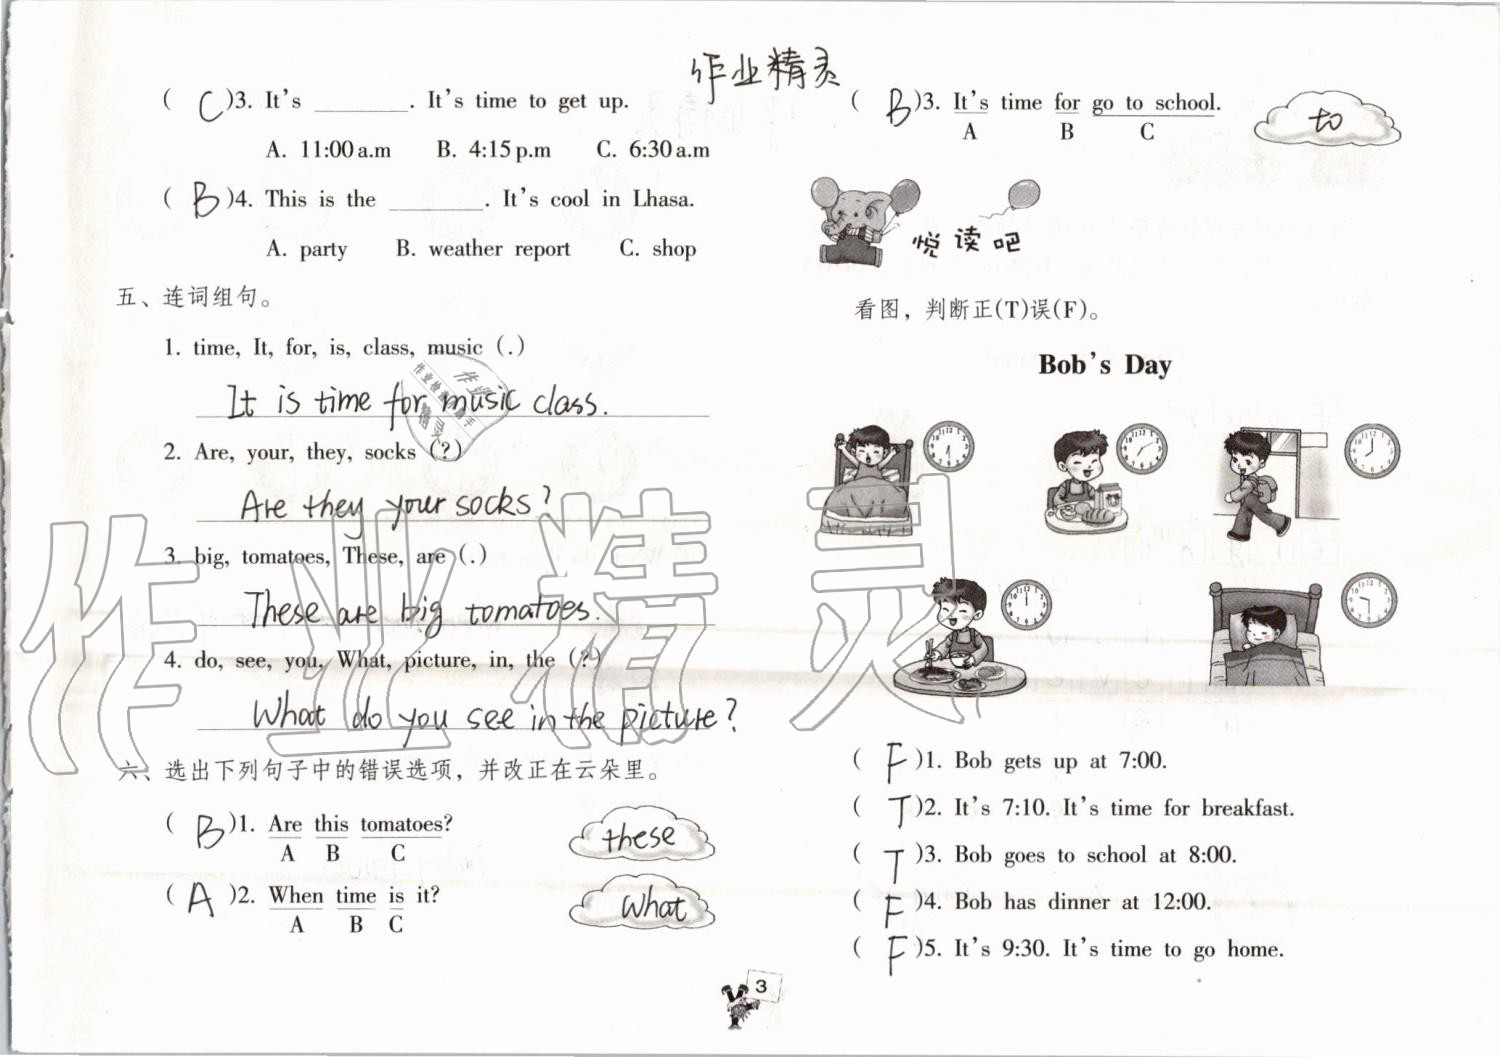 作业精灵
( C )3. It's ________. It's time to get up.
A. 11:00 a.m B. 4:15 p.m C. 6:30 a.m
( B )4. This is the ________. It's cool in Lhasa.
A. party B. weather report C. shop
五、连词组句。
1. time, It, for, is, class, music (.)
It is time for music class.
2. Are, your, they, socks (?)
Are they your socks?
3. big, tomatoes, These, are (.)
These are big tomatoes.
4. do, see, you, What, picture, in, the (?)
What do you see in the picture?
六、选出下列句子中的错误选项，并改正在云朵里。
( B )1. Are this tomatoes? these
A B C
( A )2. When time is it? What
A B C
( B )3. It's time for go to school. to
A B C
悦读吧
看图，判断正(T)误(F)。
Bob's Day
( F )1. Bob gets up at 7:00.
( T )2. It's 7:10. It's time for breakfast.
( T )3. Bob goes to school at 8:00.
( F )4. Bob has dinner at 12:00.
( F )5. It's 9:30. It's time to go home.
3
作业精灵